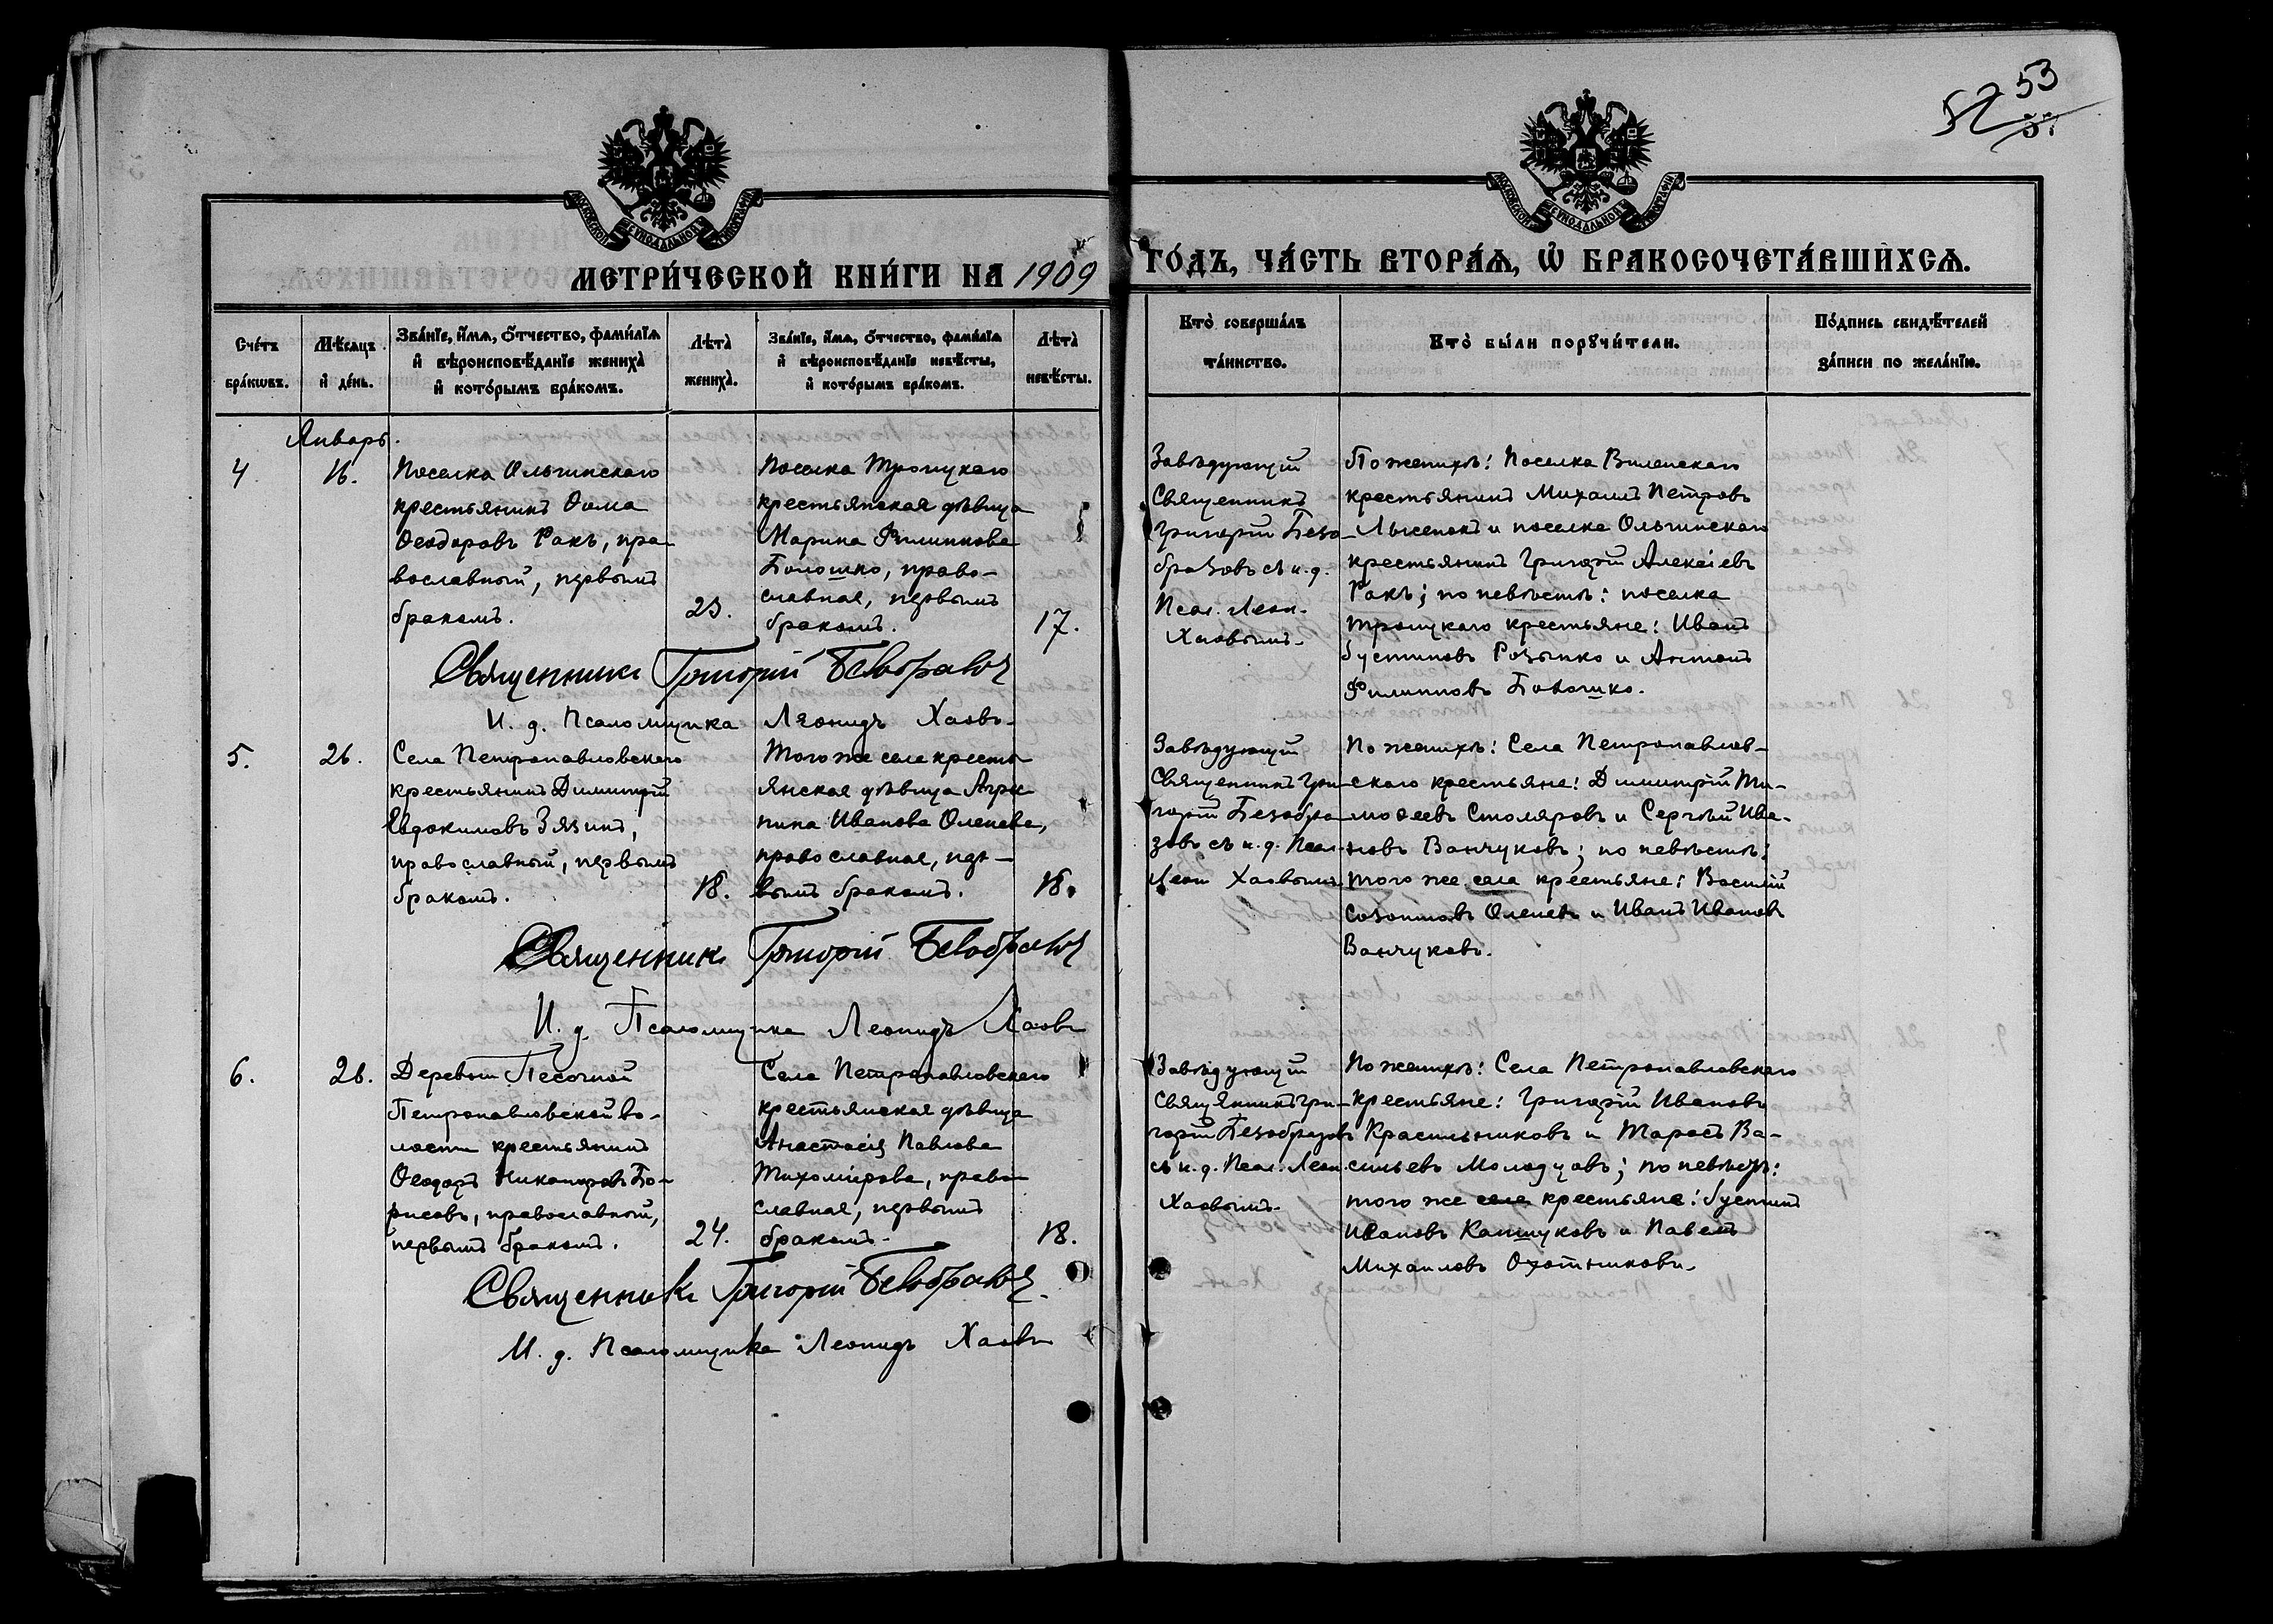 53
52
МЕТРИ́ЧЕСКОЙ КНИ́ГИ НА 1909 ГО́ДЪ, ЧА́СТЬ ВТОРА́Ѧ, Ѡ БРАКОСОЧЕТА́ВШИХСѦ.
Сче́тъ бра́кѡвъ.
Мѣ́сѧцъ и де́нь.
Зва́нїе, и́мѧ, о́тчество, фами́лїѧ и вѣроисповѣ́данїе жениха̀ и кото́рымъ бра́комъ.
Лѣта̀ жениха̀.
Зва́нїе, и́мѧ, о́тчество, фами́лїѧ и вѣроисповѣ́данїе невѣ́сты, и кото́рымъ бра́комъ.
Лѣта̀ невѣ́сты.
Кто̀ соверша́лъ та́инство.
Кто̀ бы́ли порꙋчи́тели.
По́дпись свидѣ́телей за́писи по жела́нїю.
Январь.
4
16.
Поселка Ольгинскаго
крестьянинъ Ѳома
Ѳеодоровъ Ракъ, пра-
вославный, первымъ
бракомъ.
23.
Поселка Троицкаго
крестьянская дѣвица
Марина Филиппова
Болошко, право-
славная, первымъ
бракомъ.
17.
Завѣдующій
Священникъ
Григорій Безо-
бразовъ съ и. д.
Псал. Леон.
Хаовымъ.
По женихѣ: Поселка Виленскаго
крестьянинъ Михаилъ Петровъ
Лысенокъ и поселка Ольгинскаго
крестьянинъ Григорій Алексѣевъ
Ракъ; по невѣстѣ: поселка
Троицкаго крестьяне: Иванъ
Іустиновъ Розынко и Антонъ
Филипповъ Болошко.
Священникъ Григорій Безобразовъ
И. д. Псаломщика Леонидъ Хаовъ
5.
26.
Села Петропавловскаго
крестьянинъ Димитрій
Евдокимовъ Зязинъ,
православный, первымъ
бракомъ.
18.
Того же села кресть-
янская дѣвица Агрип-
пина Иванова Оленева,
православная, пер-
вымъ бракомъ.
18.
Завѣдующій
Священникъ Гри-
горій Безобра-
зовъ съ и. д. Псал.
Леон Хаовымъ
По женихѣ: Села Петропавлов-
скаго крестьяне: Димитрій Ти-
моѳеевъ Столяровъ и Сергѣй Ива-
новъ Ванчуковъ; по невѣстѣ:
того же села крестьяне: Василій
Созонтовъ Оленевъ и Иванъ Ивановъ
Ванчуковъ.
Священникъ Григорій Безобразовъ
И. д. Псаломщика Леонидъ Хаовъ
6.
26.
Деревни Песочной
Петропавловской во-
лости крестьянинъ
Ѳеодоръ Никаноровъ Бо-
рисовъ, православный,
первымъ бракомъ.
24.
Села Петропавловскаго
крестьянская дѣвица
Анастасія Павлова
Тихомірова, право-
славная, первымъ
бракомъ.
18.
Завѣдующій
Священникъ Гри-
горій Безобразовъ
съ и. д. Псал. Леон.
Хаовымъ.
По женихѣ: Села Петропавловскаго
крестьяне: Григорій Ивановъ
Красильниковъ и Тарасъ Ва-
сильевъ Молодцовъ; по невѣстѣ:
того же села крестьяне: Іустинъ
Ивановъ Капшуковъ и Павелъ
Михаиловъ Охотниковъ.
Священникъ Григорій Безобразовъ.
И. д. Псаломщика Леонидъ Хаовъ